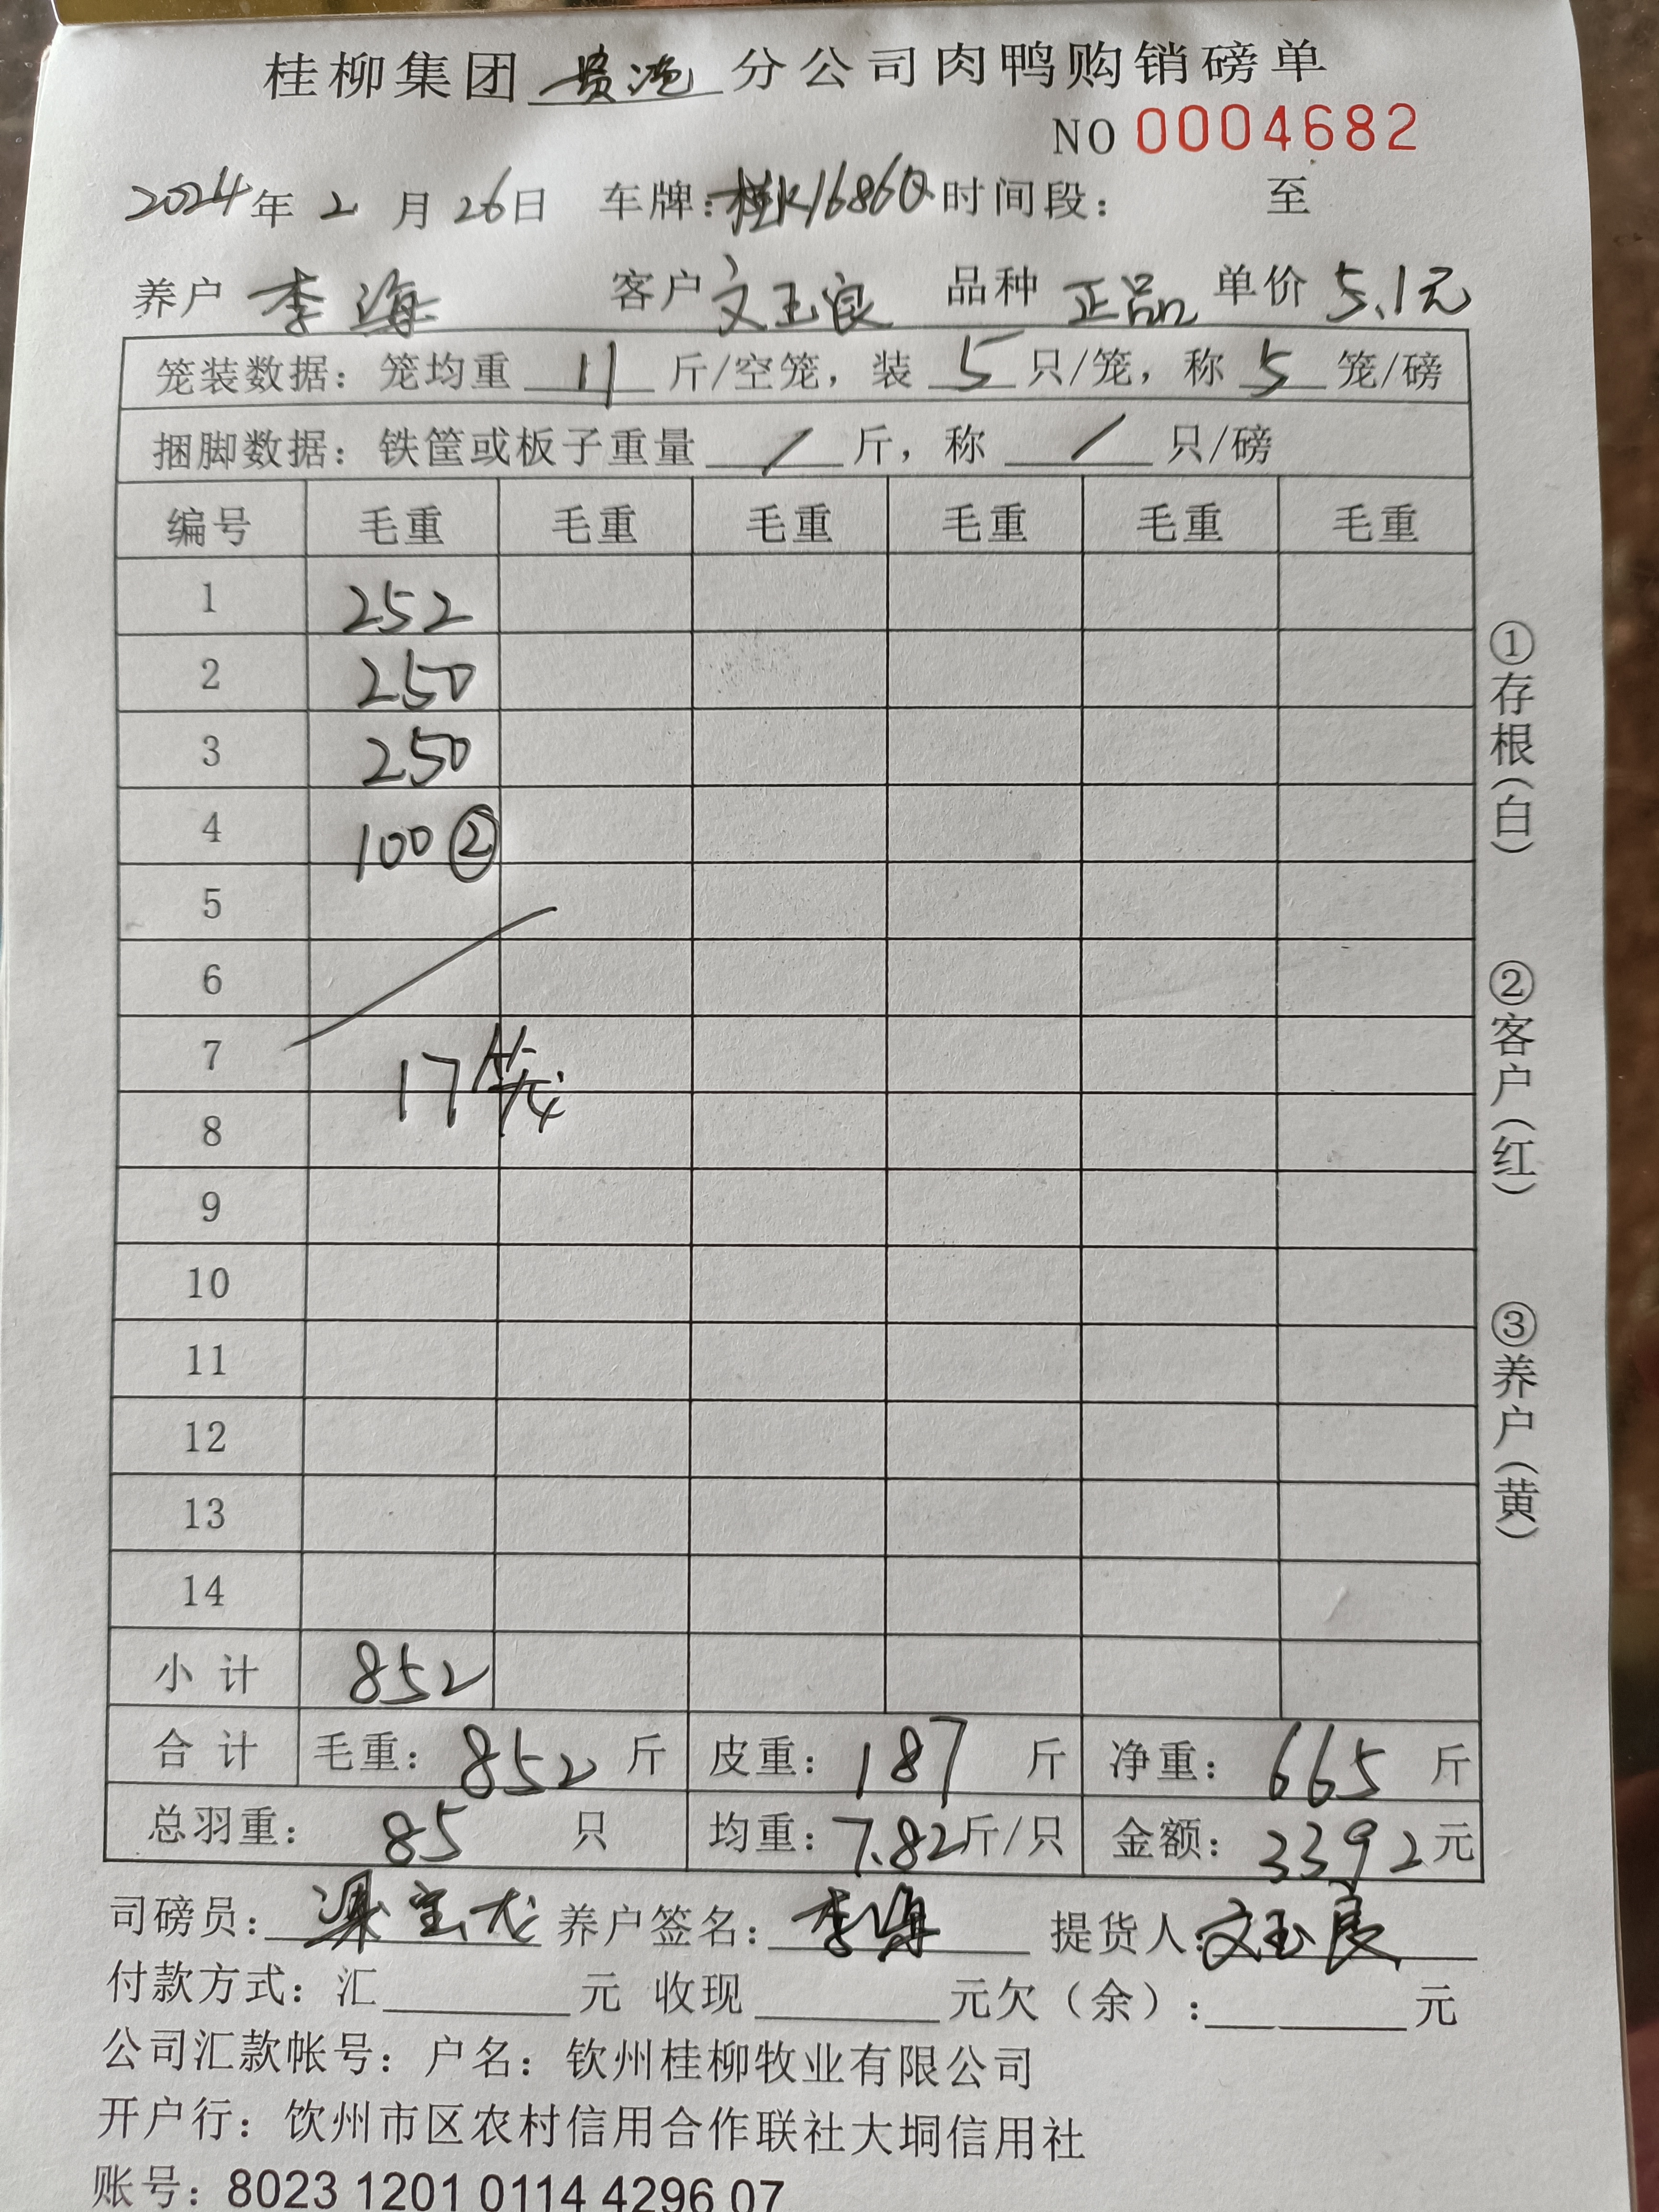 桂柳集团 贵港 分公司肉鸭购销磅单
NO 0004682
2024年 2 月 26日 车牌:桂K16860 时间段: 至
养户 李海 客户 文玉良 品种 正品 单价 5.1元
笼装数据: 笼均重 11 斤/空笼, 装 5 只/笼, 称 5 笼/磅
捆脚数据: 铁筐或板子重量 / 斤, 称 / 只/磅
编号 毛重 毛重 毛重 毛重 毛重 毛重
1 252
2 250
3 250
4 100 ②
5
6
7
17笼
8
9
10
11
12
13
14
小 计 852
合 计 毛重: 852 斤 皮重: 187 斤 净重: 665 斤
总羽重: 85 只 均重: 7.82斤/只 金额: 3392元
司磅员: 梁宝龙 养户签名: 李海 提货人:文玉良
付款方式: 汇 元 收现 元欠(余): 元
公司汇款帐号: 户名: 钦州桂柳牧业有限公司
开户行: 饮州市区农村信用合作联社大垌信用社
账号: 8023 1201 0114 4296 07
①存根(白)
②客户(红)
③养户(黄)